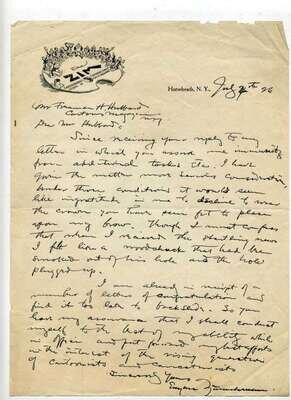 ZIM
Horseheads, N.Y., July 7th 26
Mr Freeman H. Hubbard
Cartoons Magazine
Dear Mr Hubbard:
Since receiving your reply to my
letter in which you assure me immunity
from additional tasks etc. I have
given the matter more serious consideration,
Under those conditions it would seem
like ingratitude in me to decline to wear
the crown you have seen fit to place
upon my brow. Though I must confess
that when I received the startling news
I felt like a woodchuck that had been
smoked out of his hole and the hole
plugged up.
I am already in receipt of a
number of letters of congratulation and
find it too late to backslide. So you
have my assurance that I shall conduct
myself to the best of my ability while
in office and put forward my best efforts
in the interest of the rising generation
of cartoonists and caricaturists
Sincerely Yours
Eugene Zimmerman